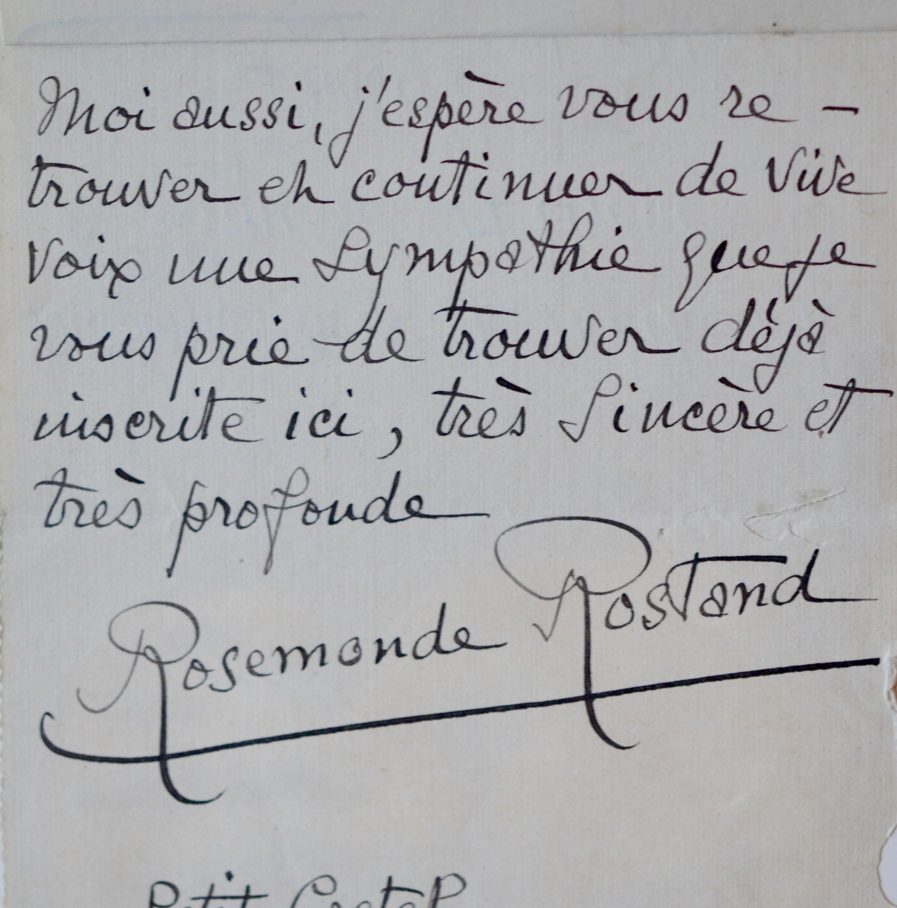 Moi aussi, j'espère vous re-
trouver et continuer de vive
voix une sympathie que je
vous prie de trouver déjà
inscrite ici, très sincère et
très profonde
Rosemonde Rostand
Petit